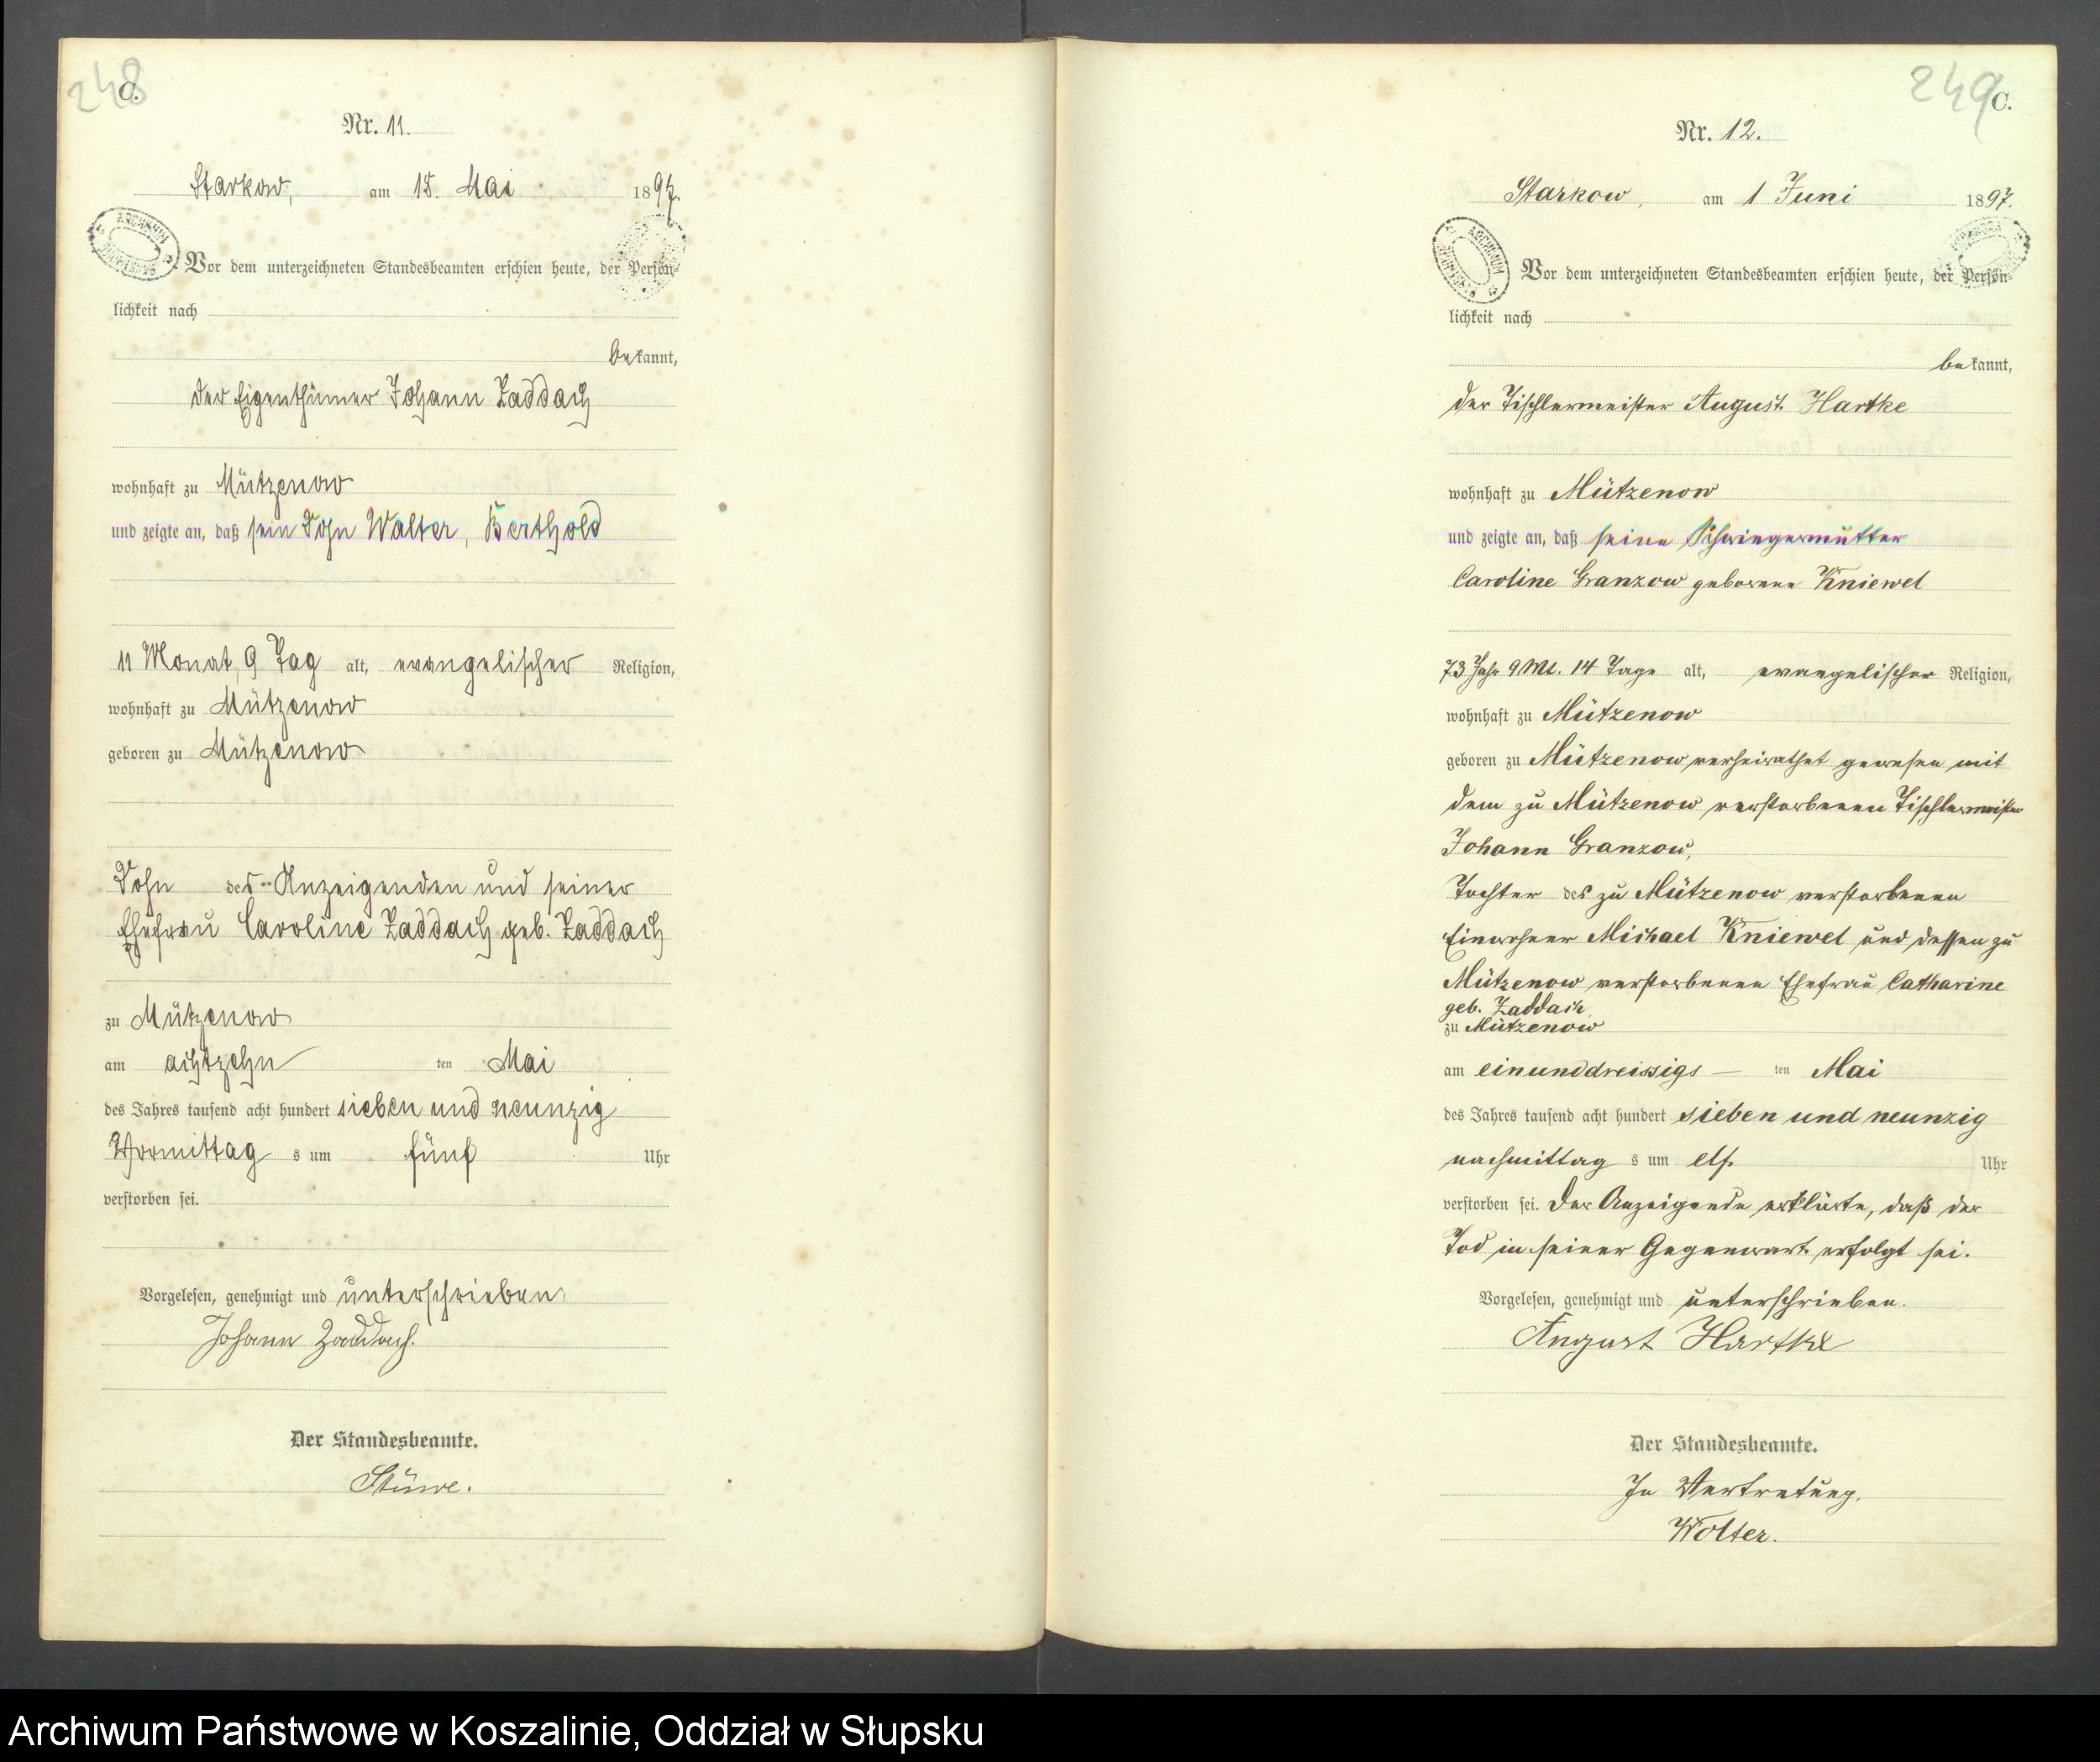 248
C.
Nr. 11.
Starkow, am 18. Mai 1897.
Vor dem unterzeichneten Standesbeamten erschien heute, der Persön-
lichkeit nach
bekannt,
der Eigenthümer Johann Zaddach
wohnhaft zu Mützenow
und zeigte an, daß sein Sohn Walter, Berthold
11 Monat, 9 Tag alt, evangelischer Religion,
wohnhaft zu Mützenow
geboren zu Mützenow
Sohn des Anzeigenden und seiner
Ehefrau Caroline Zaddach geb. Zaddach
zu Mützenow
am achtzehn ten Mai
des Jahres tausend acht hundert sieben und neunzig
Vormittag s um fünf Uhr
verstorben sei.
Vorgelesen, genehmigt und unterschrieben
Johann Zaddach.
Der Standesbeamte.
Stüwe.
249
C.
Nr. 12.
Starkow, am 1 Juni 1897.
Vor dem unterzeichneten Standesbeamten erschien heute, der Persön-
lichkeit nach
bekannt,
der Tischlermeister August Hartke
wohnhaft zu Mützenow
und zeigte an, daß seine Schwiegermutter
Caroline Granzow geborene Kniewel
73 Jahr 9 Mt. 14 Tage alt, evangelischer Religion,
wohnhaft zu Mützenow
geboren zu Mützenow verheirathet gewesen mit
dem zu Mützenow verstorbenen Tischlermeister
Johann Granzow,
Tochter des zu Mützenow verstorbenen
Einwohner Michael Kniewel und dessen zu
Mützenow verstorbenen Ehefrau Catharine
geb. Zaddach
zu Mützenow
am einunddreissigs ten Mai
des Jahres tausend acht hundert sieben und neunzig
nachmittag s um elf Uhr
verstorben sei. Der Anzeigende erklärte, daß der
Tod in seiner Gegenwart erfolgt sei.
Vorgelesen, genehmigt und unterschrieben.
August Hartke
Der Standesbeamte.
In Vertretung.
Wolter.
Archiwum Państwowe w Koszalinie, Oddział w Słupsku